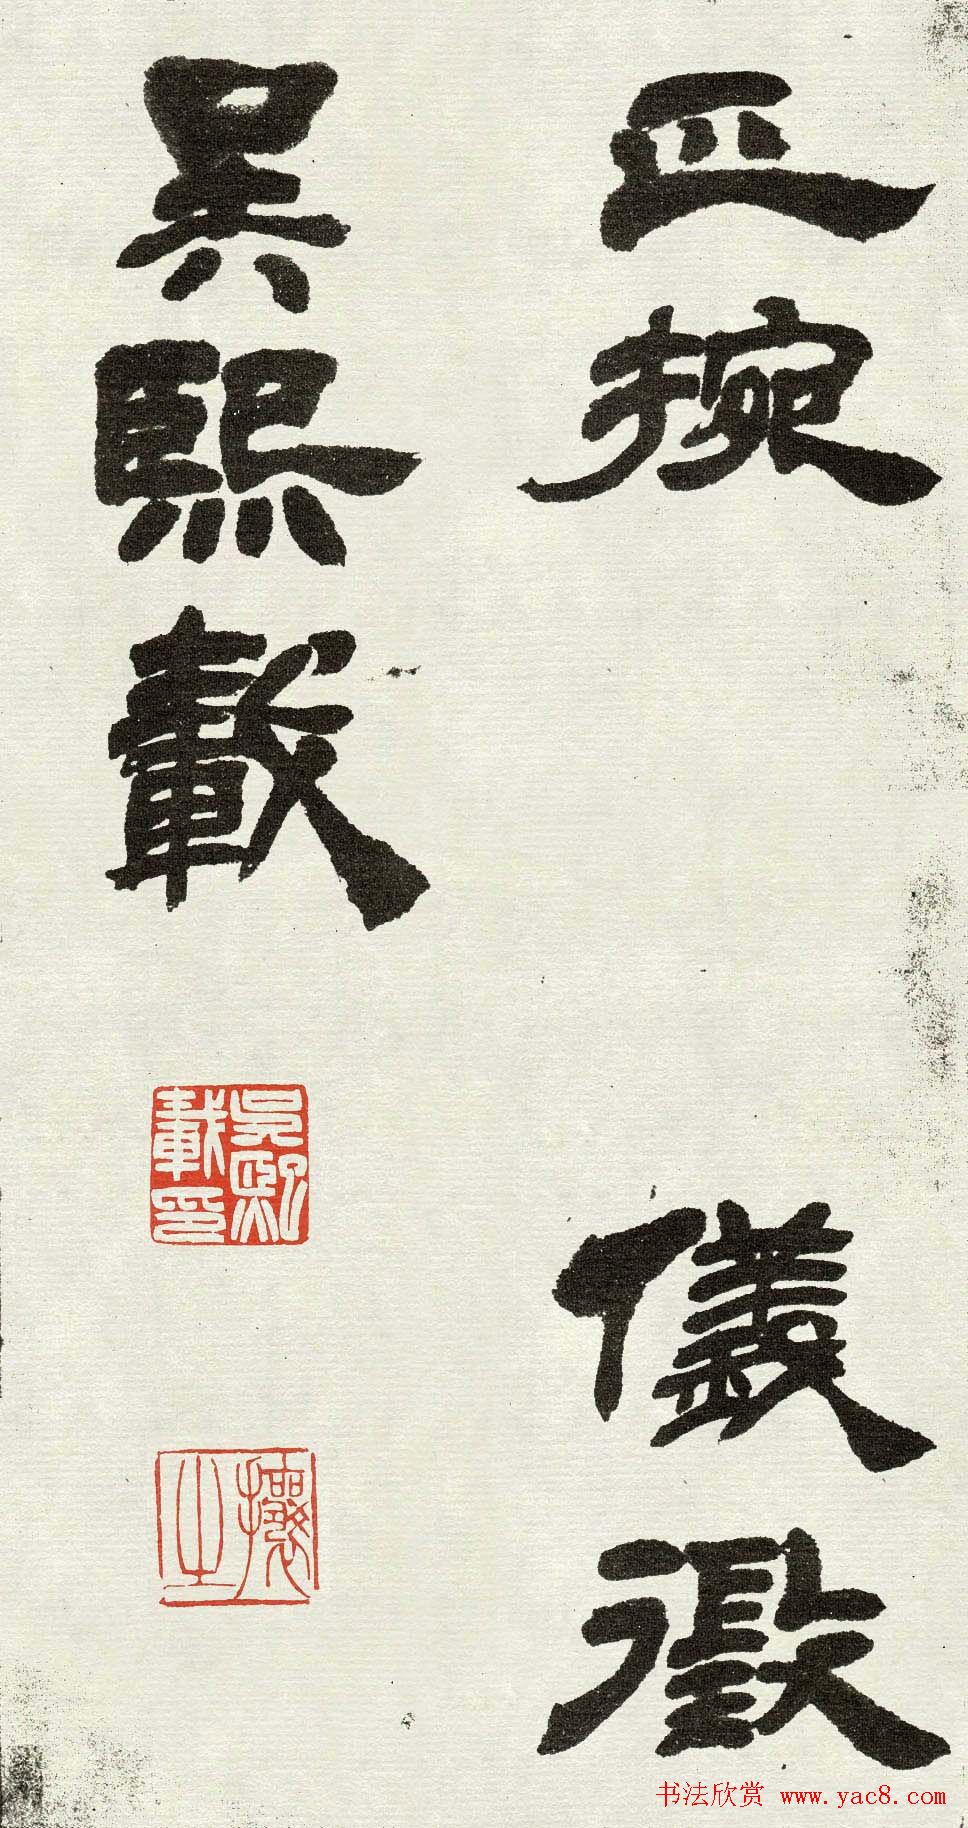 正捥
儀徵
吳熙載
吳熙載印
攘之
书法欣赏 www.yac8.com